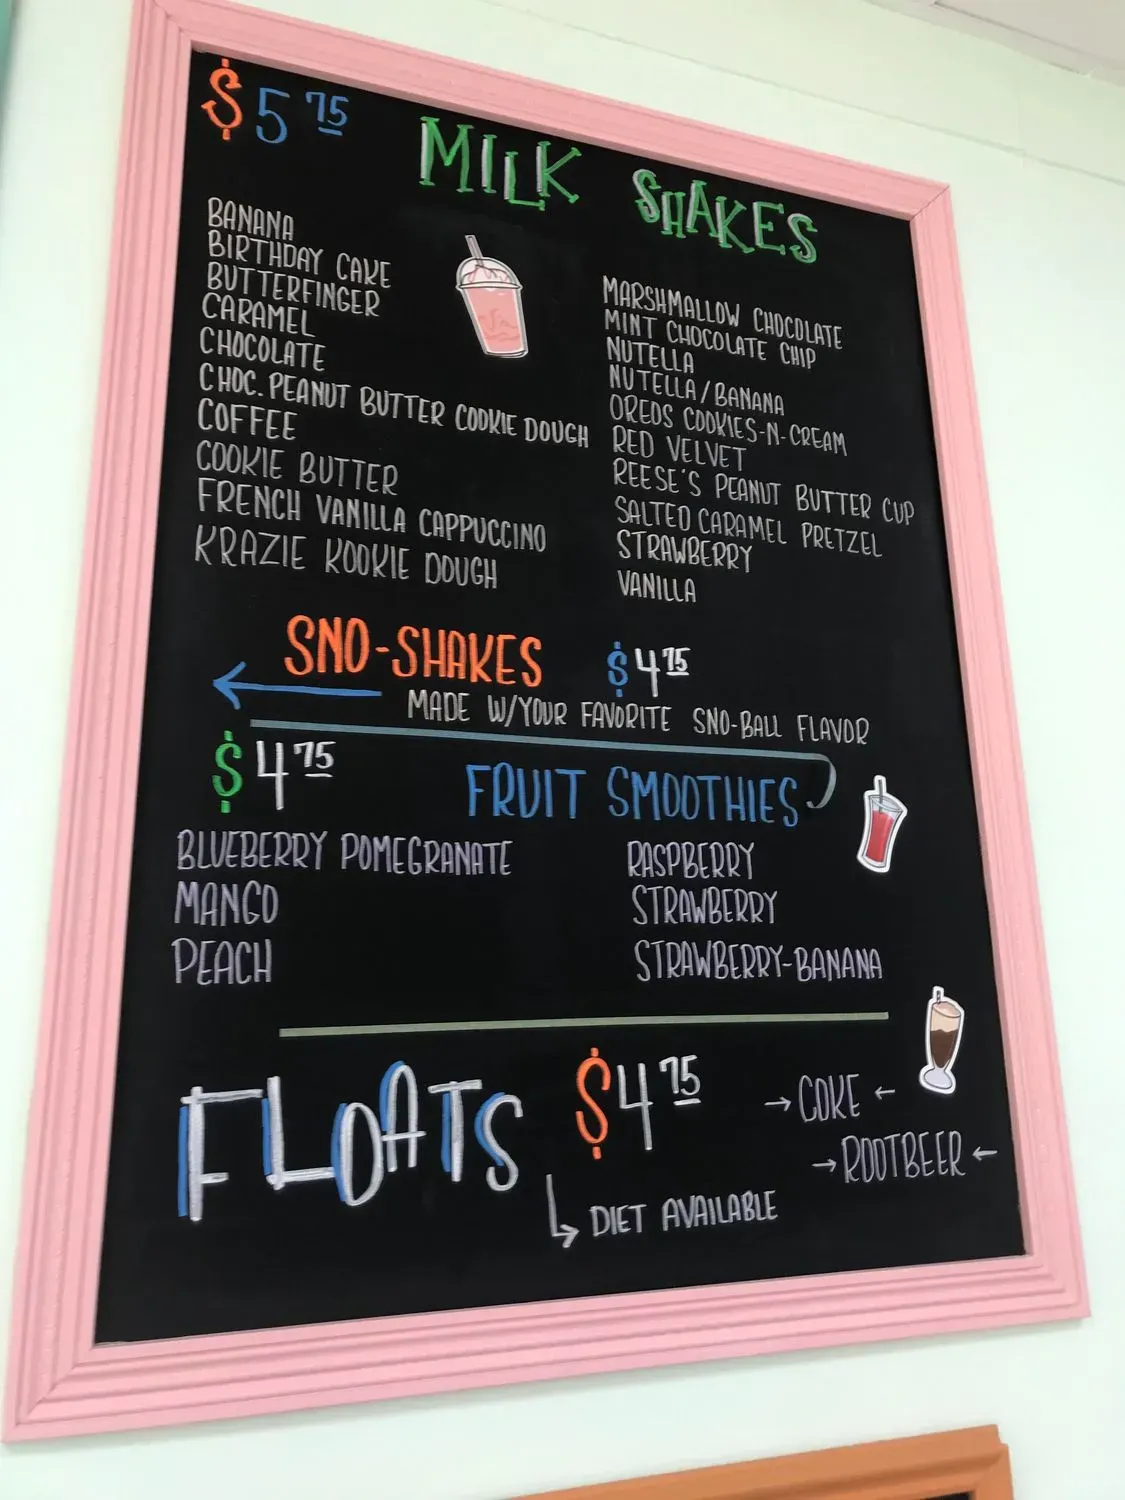 $5 75
MILK SHAKES
BANANA
BIRTHDAY CAKE
BUTTERFINGER
CARAMEL
CHOCOLATE
CHOC. PEANUT BUTTER COOKIE DOUGH
COFFEE
COOKIE BUTTER
FRENCH VANILLA CAPPUCCINO
KRAZIE KOOKIE DOUGH
MARSHMALLOW CHOCOLATE
MINT CHOCOLATE CHIP
NUTELLA
NUTELLA/BANANA
OREOS COOKIES-N-CREAM
RED VELVET
REESE'S PEANUT BUTTER CUP
SALTED CARAMEL PRETZEL
STRAWBERRY
VANILLA
SNO-SHAKES $4 75
← MADE W/YOUR FAVORITE SNO-BALL FLAVOR
$4 75
FRUIT SMOOTHIES
BLUEBERRY POMEGRANATE
MANGO
PEACH
RASPBERRY
STRAWBERRY
STRAWBERRY-BANANA
FLOATS $4 75
→ COKE ←
→ ROOTBEER ←
DIET AVAILABLE